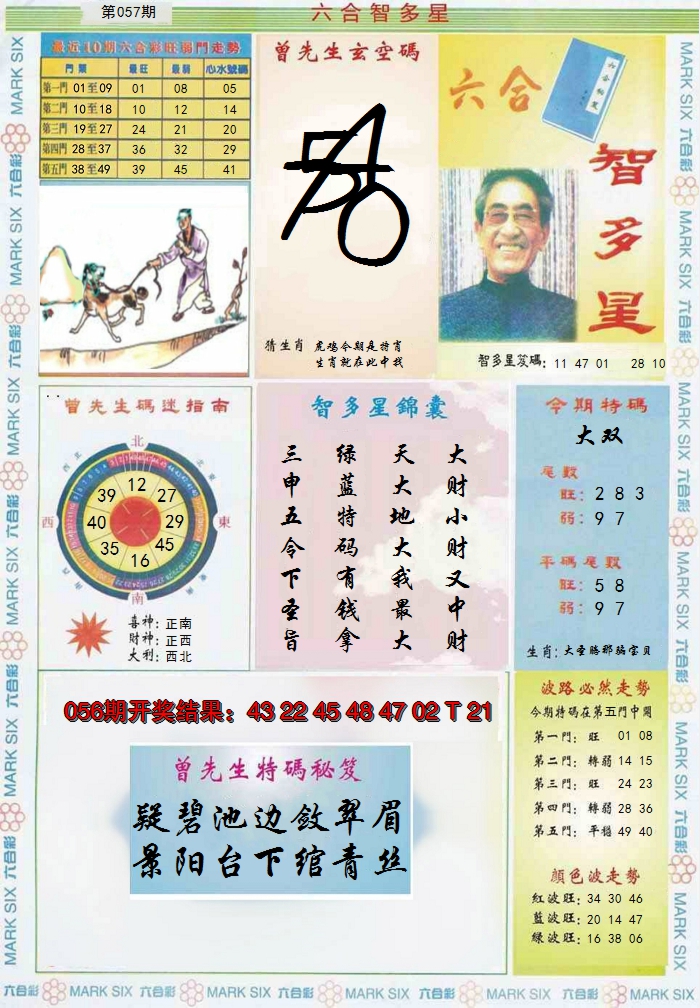 第057期
六合智多星
最近10期六合彩旺弱門走勢
門類 最旺 最弱 心水號碼
第一門 01至09 01 08 05
第二門 10至18 10 12 14
第三門 19至27 24 21 20
第四門 28至37 36 32 29
第五門 38至49 39 45 41
曾先生玄空碼
猜生肖 虎鸡今期是特肖
生肖就在此中找
六合
智多星
智多星笈碼: 11 47 01 28 10
曾先生碼迷指南
北
西
東
南
12
27
29
45
16
35
40
39
喜神: 正南
財神: 正西
大利: 西北
智多星錦囊
大财小财又中财
天大地大我最大
绿蓝特码有钱拿
三申五令下圣旨
今期特碼
大双
尾數
旺: 2 8 3
弱: 9 7
平碼尾數
旺: 5 8
弱: 9 7
生肖: 大圣胜那骗宝贝
056期开奖结果: 43 22 45 48 47 02 T 21
曾先生特碼秘笈
疑碧池边敛翠眉
景阳台下绾青丝
波路必然走勢
今期特碼在第五門中開
第一門: 旺 01 08
第二門: 轉弱 14 15
第三門: 旺 24 23
第四門: 轉弱 28 36
第五門: 平穩 49 40
顏色波走勢
紅波旺: 34 30 46
藍波旺: 20 14 47
綠波旺: 16 38 06
六合彩 MARK SIX 六合彩 MARK SIX 六合彩 MARK SIX 六合彩 MARK SIX 六合彩 MARK SIX